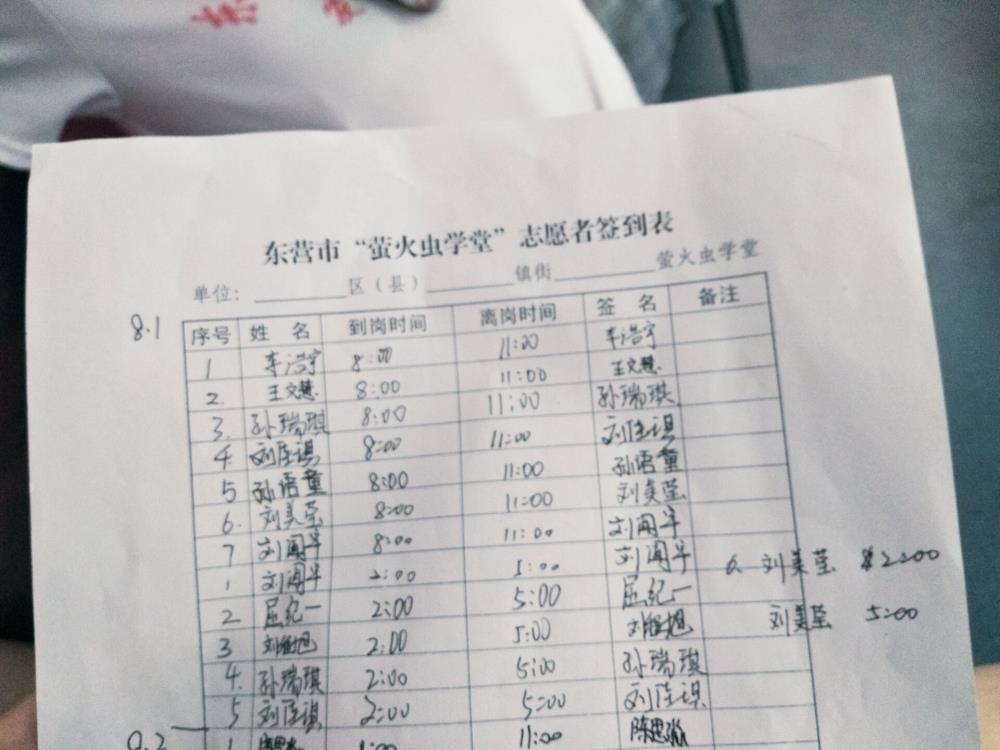 东营市“萤火虫学堂”志愿者签到表
单位：________区（县）________镇街________萤火虫学堂
8.1
序号 姓 名 到岗时间 离岗时间 签 名 备注
1 李浩宇 8:00 11:00 李浩宇
2. 王文慧 8:00 11:00 王文慧
3. 孙瑞琪 8:00 11:00 孙瑞琪
4. 刘佳琪 8:00 11:00 刘佳琪
5 孙语童 8:00 11:00 孙语童
6. 刘美莹 8:00 11:00 刘美莹
7 刘闻华 8:00 11:00 刘闻华
1 刘闻华 2:00 5:00 刘闻华 6. 刘美莹 2:00
2 屈纪一 2:00 5:00 屈纪一 刘美莹 5:00
3 2:00 5:00
4. 孙瑞琪 2:00 5:00 孙瑞琪
5 刘佳琪 2:00 5:00 刘佳琪
8.2
1 11:00